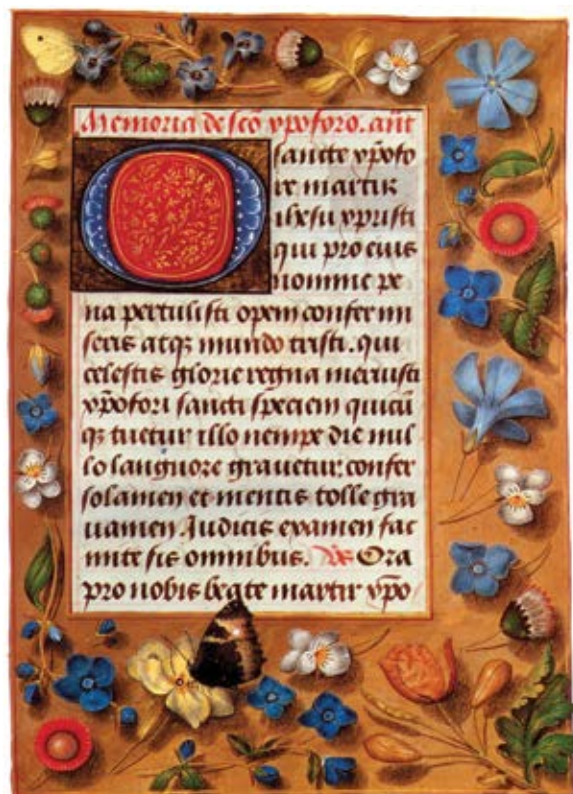 Memoria de sco xpoforo. ant
sancte xpofo
re martir
ihesu xpristi
qui pro eius
nomine pe
na pertulisti opem confer mi
seris atq; mundo tristi. qui
celestis glorie regna meruisti
xpofori sancti speciem quicu
q; tuetur illo nempe die nul
lo languore gravetur. confer
solamen et mentis tolle gra
uamen. Judicis examen fac
mite sis omnibus. Vs Ora
pro nobis beate martir xpo